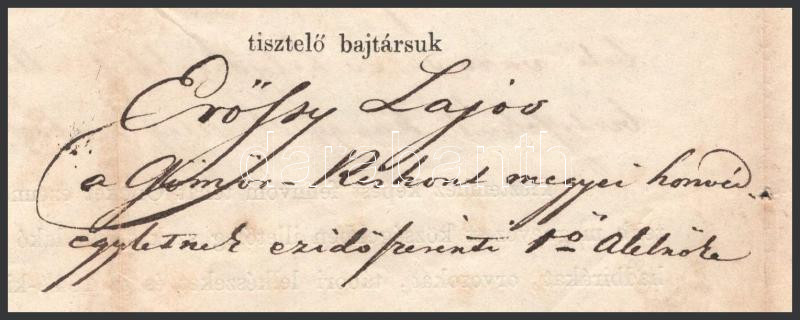 tisztelő bajtársuk
Erőssy Lajos
a Gömör-Kishont megyei honvéd
egyletnek ezidőszerinti 1ő Alelnöke
darabanth